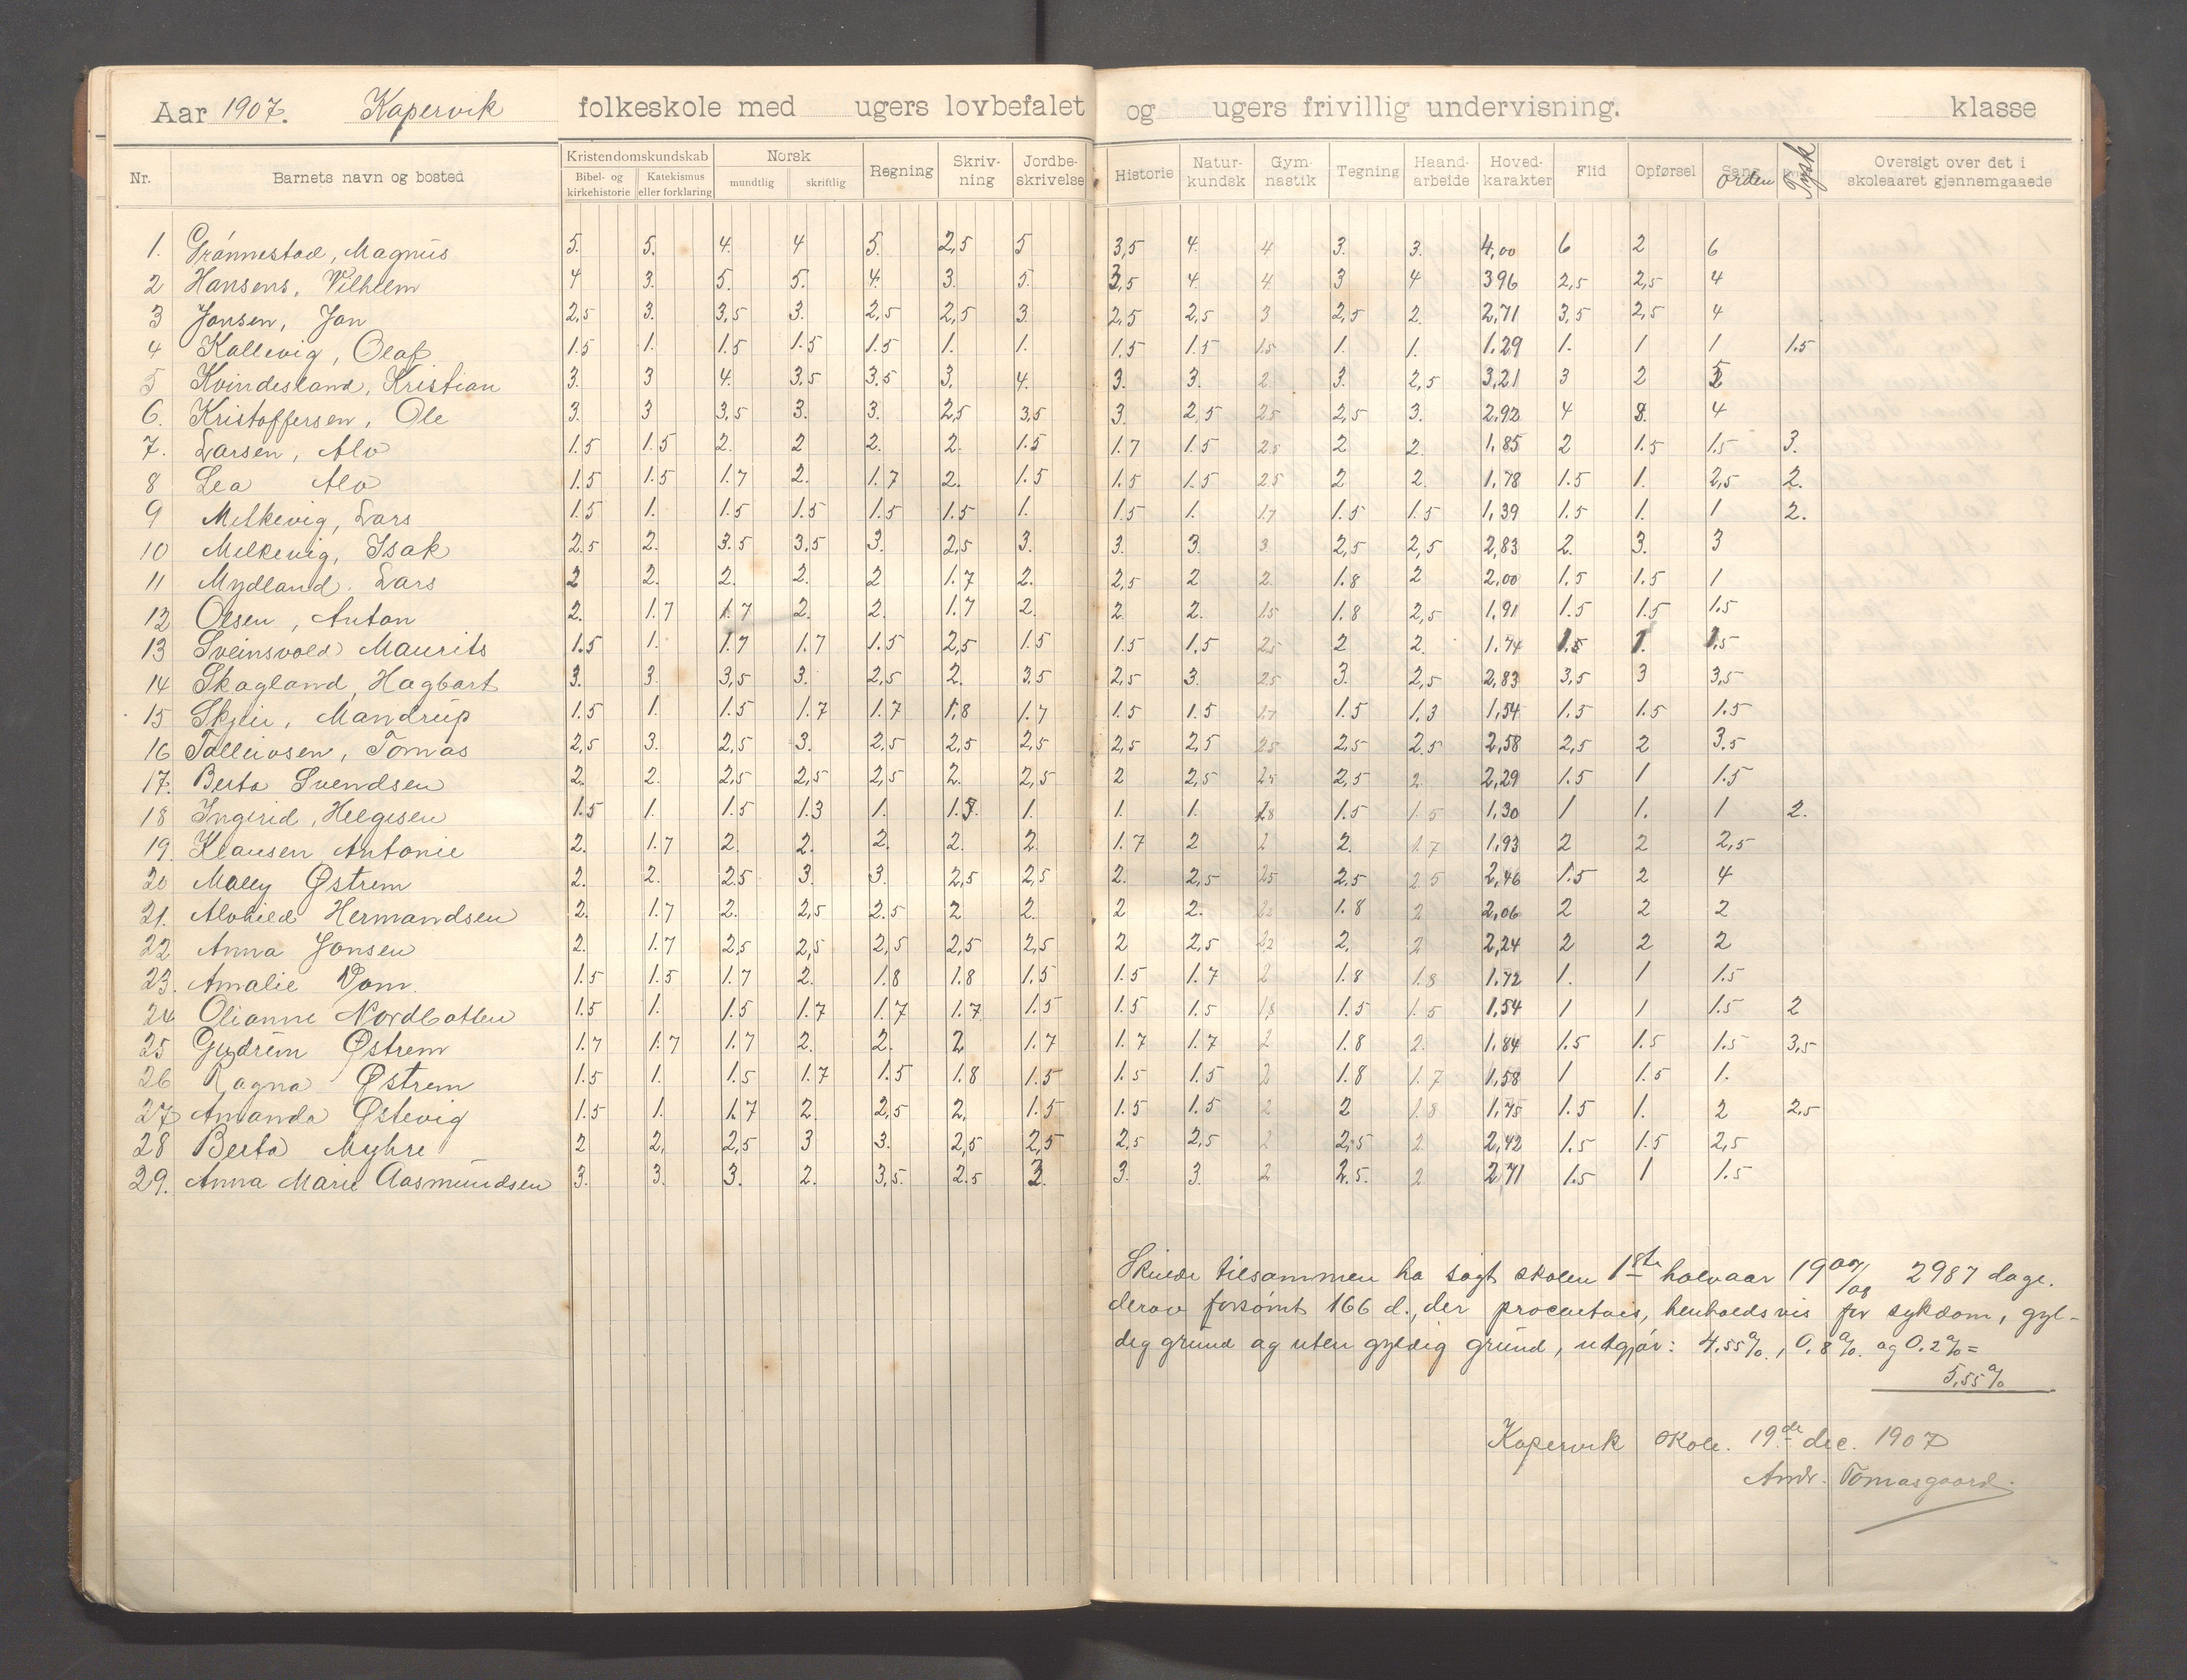 Aar 1907. Kopervik folkeskole med ugers lovbefalet og ugers frivillig undervisning. klasse
Nr. Barnets navn og bosted Kristendomskundskab Bibel- og kirkehistorie Katekismus eller forklaring Norsk mundtlig skriftlig Regning Skriv-ning Jordbe-skrivelse Historie Natur-kundsk Gym-nastik Tegning Haand-arbeide Hoved-karakter Flid Opførsel Sang Orden Tysk Oversigt over det i skoleaaret gjennemgaaede
1. Grønnestad, Magnus 5. 5. 4. 4 5. 2,5 5 3,5 4. 4 3. 3. 4,00 6 2 6
2 Hansens, Vilhelm 4 3. 5. 5. 4. 3. 5. 3,5 4. 4 3 4 396 2,5 2,5 4
3 Jonsen, Jon 2,5 3. 3,5 3. 2,5 2,5 3. 2,5 2,5 3 2,5 2. 2,71 3,5 2,5 4
4 Kallevig, Olaf 1.5 1. 1.5 1.5 1.5 1. 1. 1.5 1.5 1.5 1. 1. 1.29 1. 1 1 1.5
5 Kvindesland, Kristian 3. 3 4. 3,5 3.5 3. 4. 3. 3. 2 3. 2,5 3,21 3 2
6. Kristoffersen, Ole 3. 3 3,5 3. 3. 2,5 3,5 3. 2,5 2.5 2,5 3. 2,92 4 8. 4
7. Larsen, Alv 1.5 1.5 2. 2 2. 2. 1.5 1.7 1.5 2.5 2 2. 1,85 2 1.5 1.5 3.
8 Lea Alv 1.5 1.5 1.7 2. 1.7 2. 1.5 1.5 1.5 2.5 2 2. 1,78 1.5 1. 2,5 2.
9 Melkevig, Lars 1.5 1. 1.5 1.5 1.5 1.5 1. 1.5 1. 1.7 1.5 1.5 1,39 1.5 1. 1 2.
10 Melkevig, Isak 2.5 2. 3.5 3,5 3. 2,5 3. 3. 3. 3. 2,5 2,5 2,83 2. 3. 3
11 Mydland. Lars 2 2. 2. 2. 2 1.7 2. 2,5 2 2. 1.8 2 2,00 1.5 1.5 1
12 Olsen, Anton 2. 1.7 1.7 2. 2. 1.7 2. 2. 2. 1.5 1.8 2,5 1,91 1.5 1.5 1.5
13 Sveinsvold Maurits 1.5 1. 1.7 1.7 1.5 2,5 1.5 1.5 1,5 2.5 2 2. 1.74 1.5 1. 1,5
14 Skogland, Hagbart 3. 3. 3,5 3. 2,5 2. 3.5 2,5 3. 2.5 3. 2,5 2,83 3,5 3 3,5
15 Skjeie, Mandrup 1.5 1. 1.5 1.7 1.7 1.8 1.7 1.5 1.5 1.7 1.5 1.3 1,54 1.5 1.5 1.5
16 Tolleivsen, Tomas 2,5 3. 2,5 3. 2,5 2,5 2,5 2,5 2,5 2.5 2,5 2.5 2,58 2,5 2 3.5
17. Berta Svendsen 2. 2. 2,5 2,5 2,5 2. 2,5 2 2,5 2.5 2,5 2. 2,29 1.5 1 1.5
18 Ingerid, Helgesen 1.5 1. 1.5 1.3 1. 1. 1. 1. 1.5 1.5 1,30 1 1. 1 2.
19. Klausen Antonie 2. 1.7 2. 2. 2. 2. 2. 1.7 2 2 2. 1.7 1,93 2 2 2,5
20 Mally Østrem 2. 2. 2.5 3. 3. 2,5 2,5 2. 2,5 2.5 2.5 2.5 2,46 1.5 2 4
21. Alvhild Hermandsen 2. 1.7 2. 2,5 2.5 2 2. 2 2. 2.2 1.8 2 2,06 2 2 2
22 Anna Jonsen 2. 1.7 2,5 2,5 2,5 2,5 2,5 2 2,5 2,2 2. 2 2,24 2 2 2
23. Amalie Vom. 1.5 1.5 1.7 2. 1.8 1.8 1.5 1.5 1.7 2 1.8 1.8 1.72 1. 1 1.5
24 Olianne Nordbotten 1.5 1. 1.5 1.7 1.7 1.7 1.5 1.5 1.5 1,8 1.5 1.5 1,54 1 1 1.5 2
25 Gudrun Østrem 1.7 1.7 1.7 2. 2. 2 1.7 1.7 1.7 2 1.8 2. 1.84 1.5 1.5 1.5 3,5
26 Ragna Østrem 1.5 1. 1.5 1.7 1.5 1.8 1.5 1.5 1.5 2 1.8 1.7 1,58 1 1.5 1.
27 Amanda Østevig 1.5 1. 1.7 2. 2,5 2. 1.5 1.5 1.5 2 2 1.8 1,75 1.5 1. 2 2,5
28 Berta Myhre 2 2, 2,5 3 3. 2,5 2,5 2,5 2,5 2 2,5 2. 2,42 1.5 1.5 2,5
29. Anna Marie Aasmundsen 3. 3. 3. 2. 3,5. 2.5 3. 3. 2 2.5. 2 2,71 1.5 1 1.5
Skulde tilsammen ha søgt skolen 1ste halvaar 1907/08 2987 dage.
derav forsømt 166 d., der procentvis, henholdsvis for sykdom, gyl-
dig grund og uten gyldig grund, utgjør: 4.55%, 0.8% og 0.2% =
5,55%
Kopervik skole. 19de dec. 1907
Andr. Tomasgaard.